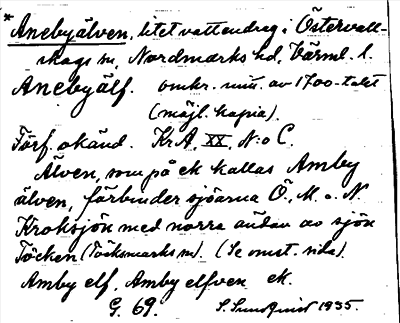 * Anebyälven, litet vattendrag i Östervall-
skogs sn, Nordmarks hd, Värml. l.
Anebyälf. omkr. mitt. av 1700-talet
(möjl. kopia).
Förf. okänd. Kr.A. XX, N:o C.
Älven, som på ek kallas Amby
älven, förbinder sjöarna Ö., M. o. N.
Kroksjön med norra ändan av sjön
Töcken (Töcksmarks sn). (Se omst. sida).
Amby elf, Amby elfven ek.
G. 69. S. Sundqvist 1935.